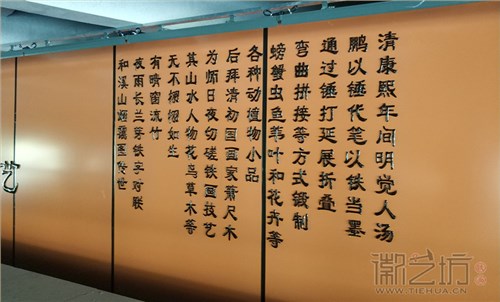 清康熙年间明觉人汤
鹏以锤代笔以铁当墨
通过锤打延展折叠
弯曲拼接等方式锻制
螃蟹虫鱼荷叶和花卉等
各种动植物小品
后拜清初国画家萧尺木
为师日夜切磋铁画技艺
其山水人物花鸟草木等
无不栩栩如生
有晴窗流竹
夜雨长兰等铁字对联
和溪山烟霭图传世
艺
徽艺坊
WWW.TIEHUA.CN